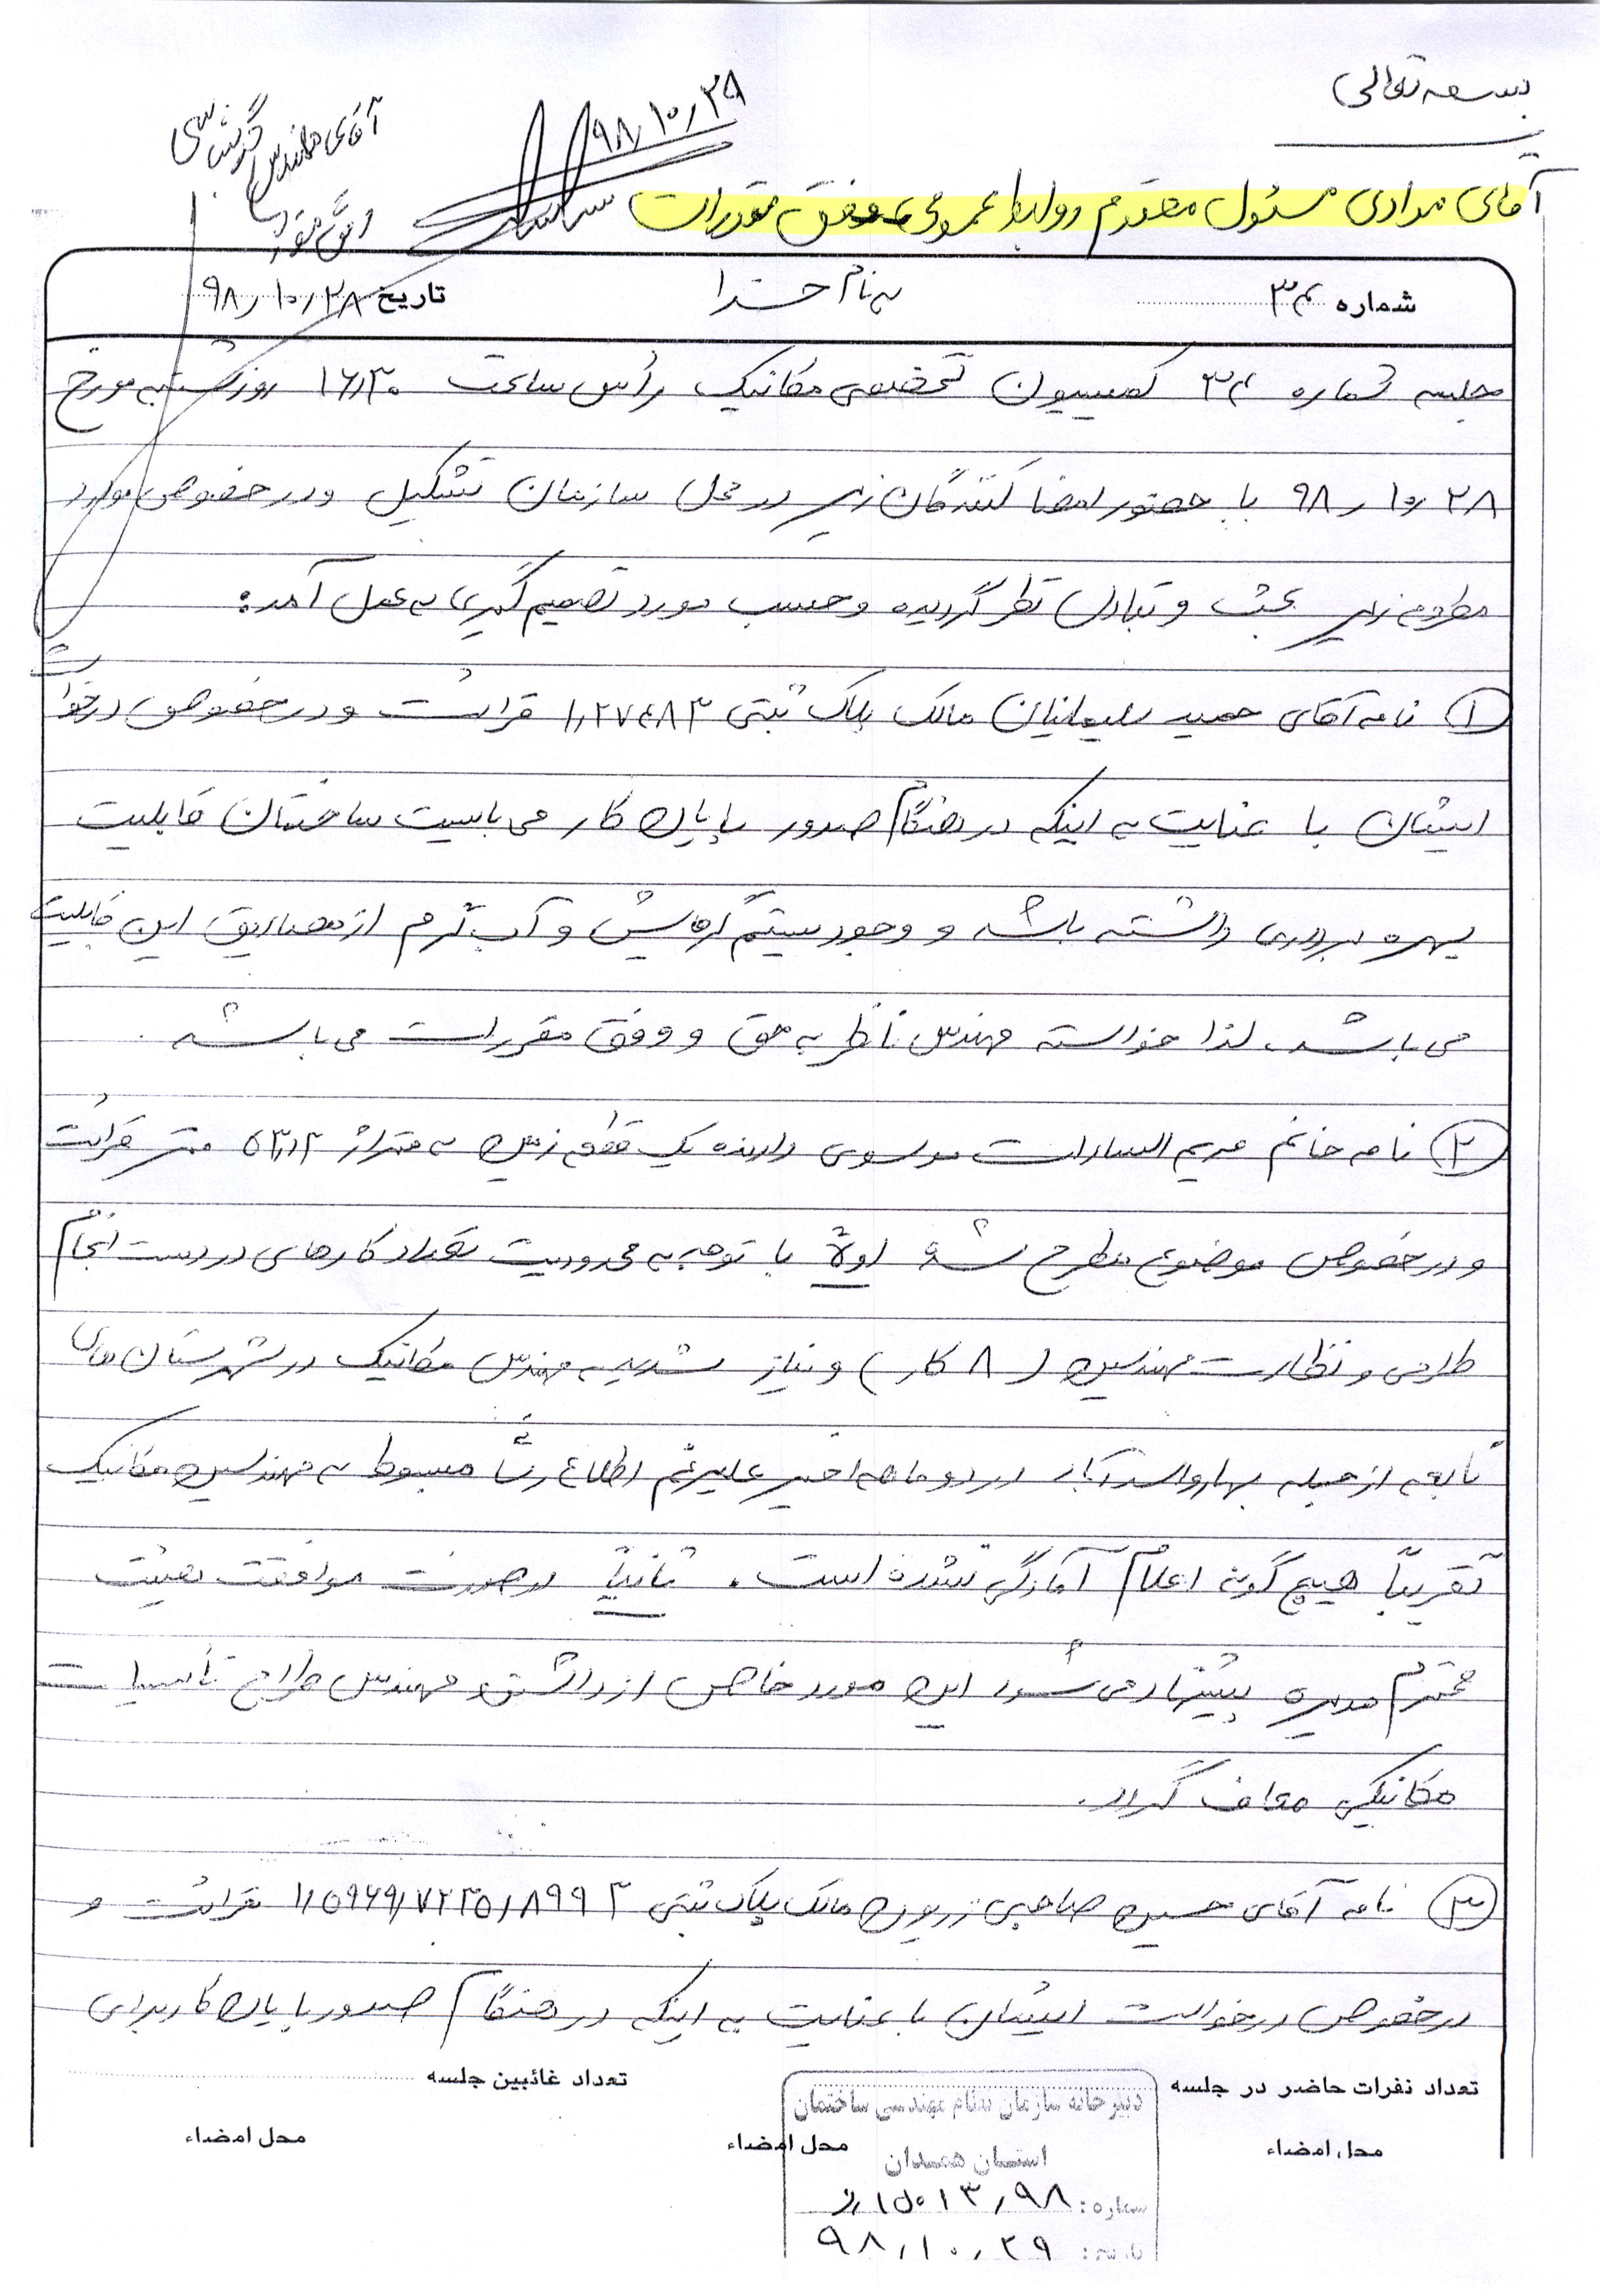 بسمه تعالی
۹۸/۱۰/۲۹
آقای مهندس گرشاسبی
آقای مرادی مسئول محترم روابط عمومی وفق مقررات
شماره ۳۴
به نام خدا
تاریخ ۹۸/۱۰/۲۸
جلسه شماره ۳۴ کمیسیون تخصصی مکانیک رأس ساعت ۱۶/۳۰ روز شنبه مورخ
۹۸/۱۰/۲۸ با حضور امضا کنندگان زیر در محل سازمان تشکیل و در خصوص موارد
مطروحه زیر بحث و تبادل نظر گردیده و حسب مورد تصمیم گیری به عمل آمد:
۱ نامه آقای حمید سلیمانیان مالک پلاک ثبتی قرائت و در خصوص درخواست
ایشان با عنایت به اینکه در هنگام صدور پایان کار می بایست ساختمان قابلیت
بهره برداری داشته باشد و وجود سیستم گرمایش و آب گرم از مصادیق این قابلیت
می باشد. لذا خواسته مهندس ناظر به حق و وفق مقررات می باشد.
۲ نامه خانم مریم السادات موسوی دارنده یک قطعه زمین به متراژ ۵۳/۲ متر قرائت
و در خصوص موضوع مطرح شد اولاً با توجه به محدودیت تعداد کارهای در دست انجام
طراحی و نظارت مهندسین (۸ کار) و نیاز شدید به مهندس مکانیک در شهرستان های
تابعه از جمله بهار و اسدآباد در دو ماهه اخیر علیرغم اطلاع رسانی مبسوط به مهندسین مکانیک
تقریباً هیچ گونه اعلام آمادگی نشده است. ثانیاً در صورت موافقت هیئت
محترم مدیره پیشنهاد می شود این مورد خاص از داشتن مهندس طراح تأسیسات
مکانیکی معاف گردد.
۳ نامه آقای حسین صاحبی مالک پلاک ثبتی ۱/۵۹۶۹/۷۲۳۵/۸۹۹۳ قرائت و
در خصوص درخواست ایشان با عنایت به اینکه در هنگام صدور پایان کار برای
تعداد نفرات حاضر در جلسه
تعداد غائبین جلسه
محل امضاء
محل امضاء
محل امضاء
دبیرخانه سازمان نظام مهندسی ساختمان
استان همدان
شماره: ۱۵۰۱۳/۹۸
تاریخ: ۹۸/۱۰/۲۹